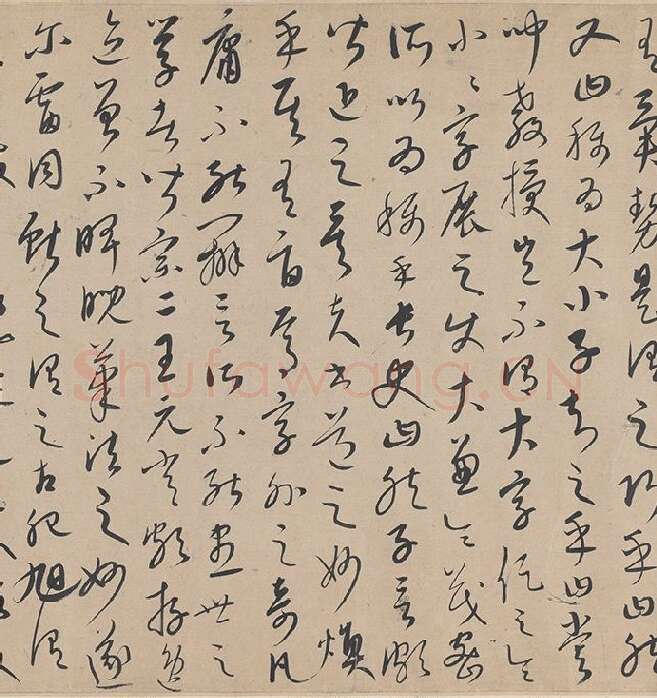 有異勢是謂之巧乎曰然
又曰稱為大小子知之乎曰嘗
聞教授豈不謂大字促之令
小々字展之使大兼令茂密
所以為稱乎長史曰然子言頗
皆近之矣夫書道之妙煥
乎其有旨焉字外之奇凡
庸不能辨言所不能盡世之
學者皆宗二王元常頗存逸
迹曾不睥睨筆法之妙遂
尔雷同獻之謂之古肥旭謂
Shufawang.CN